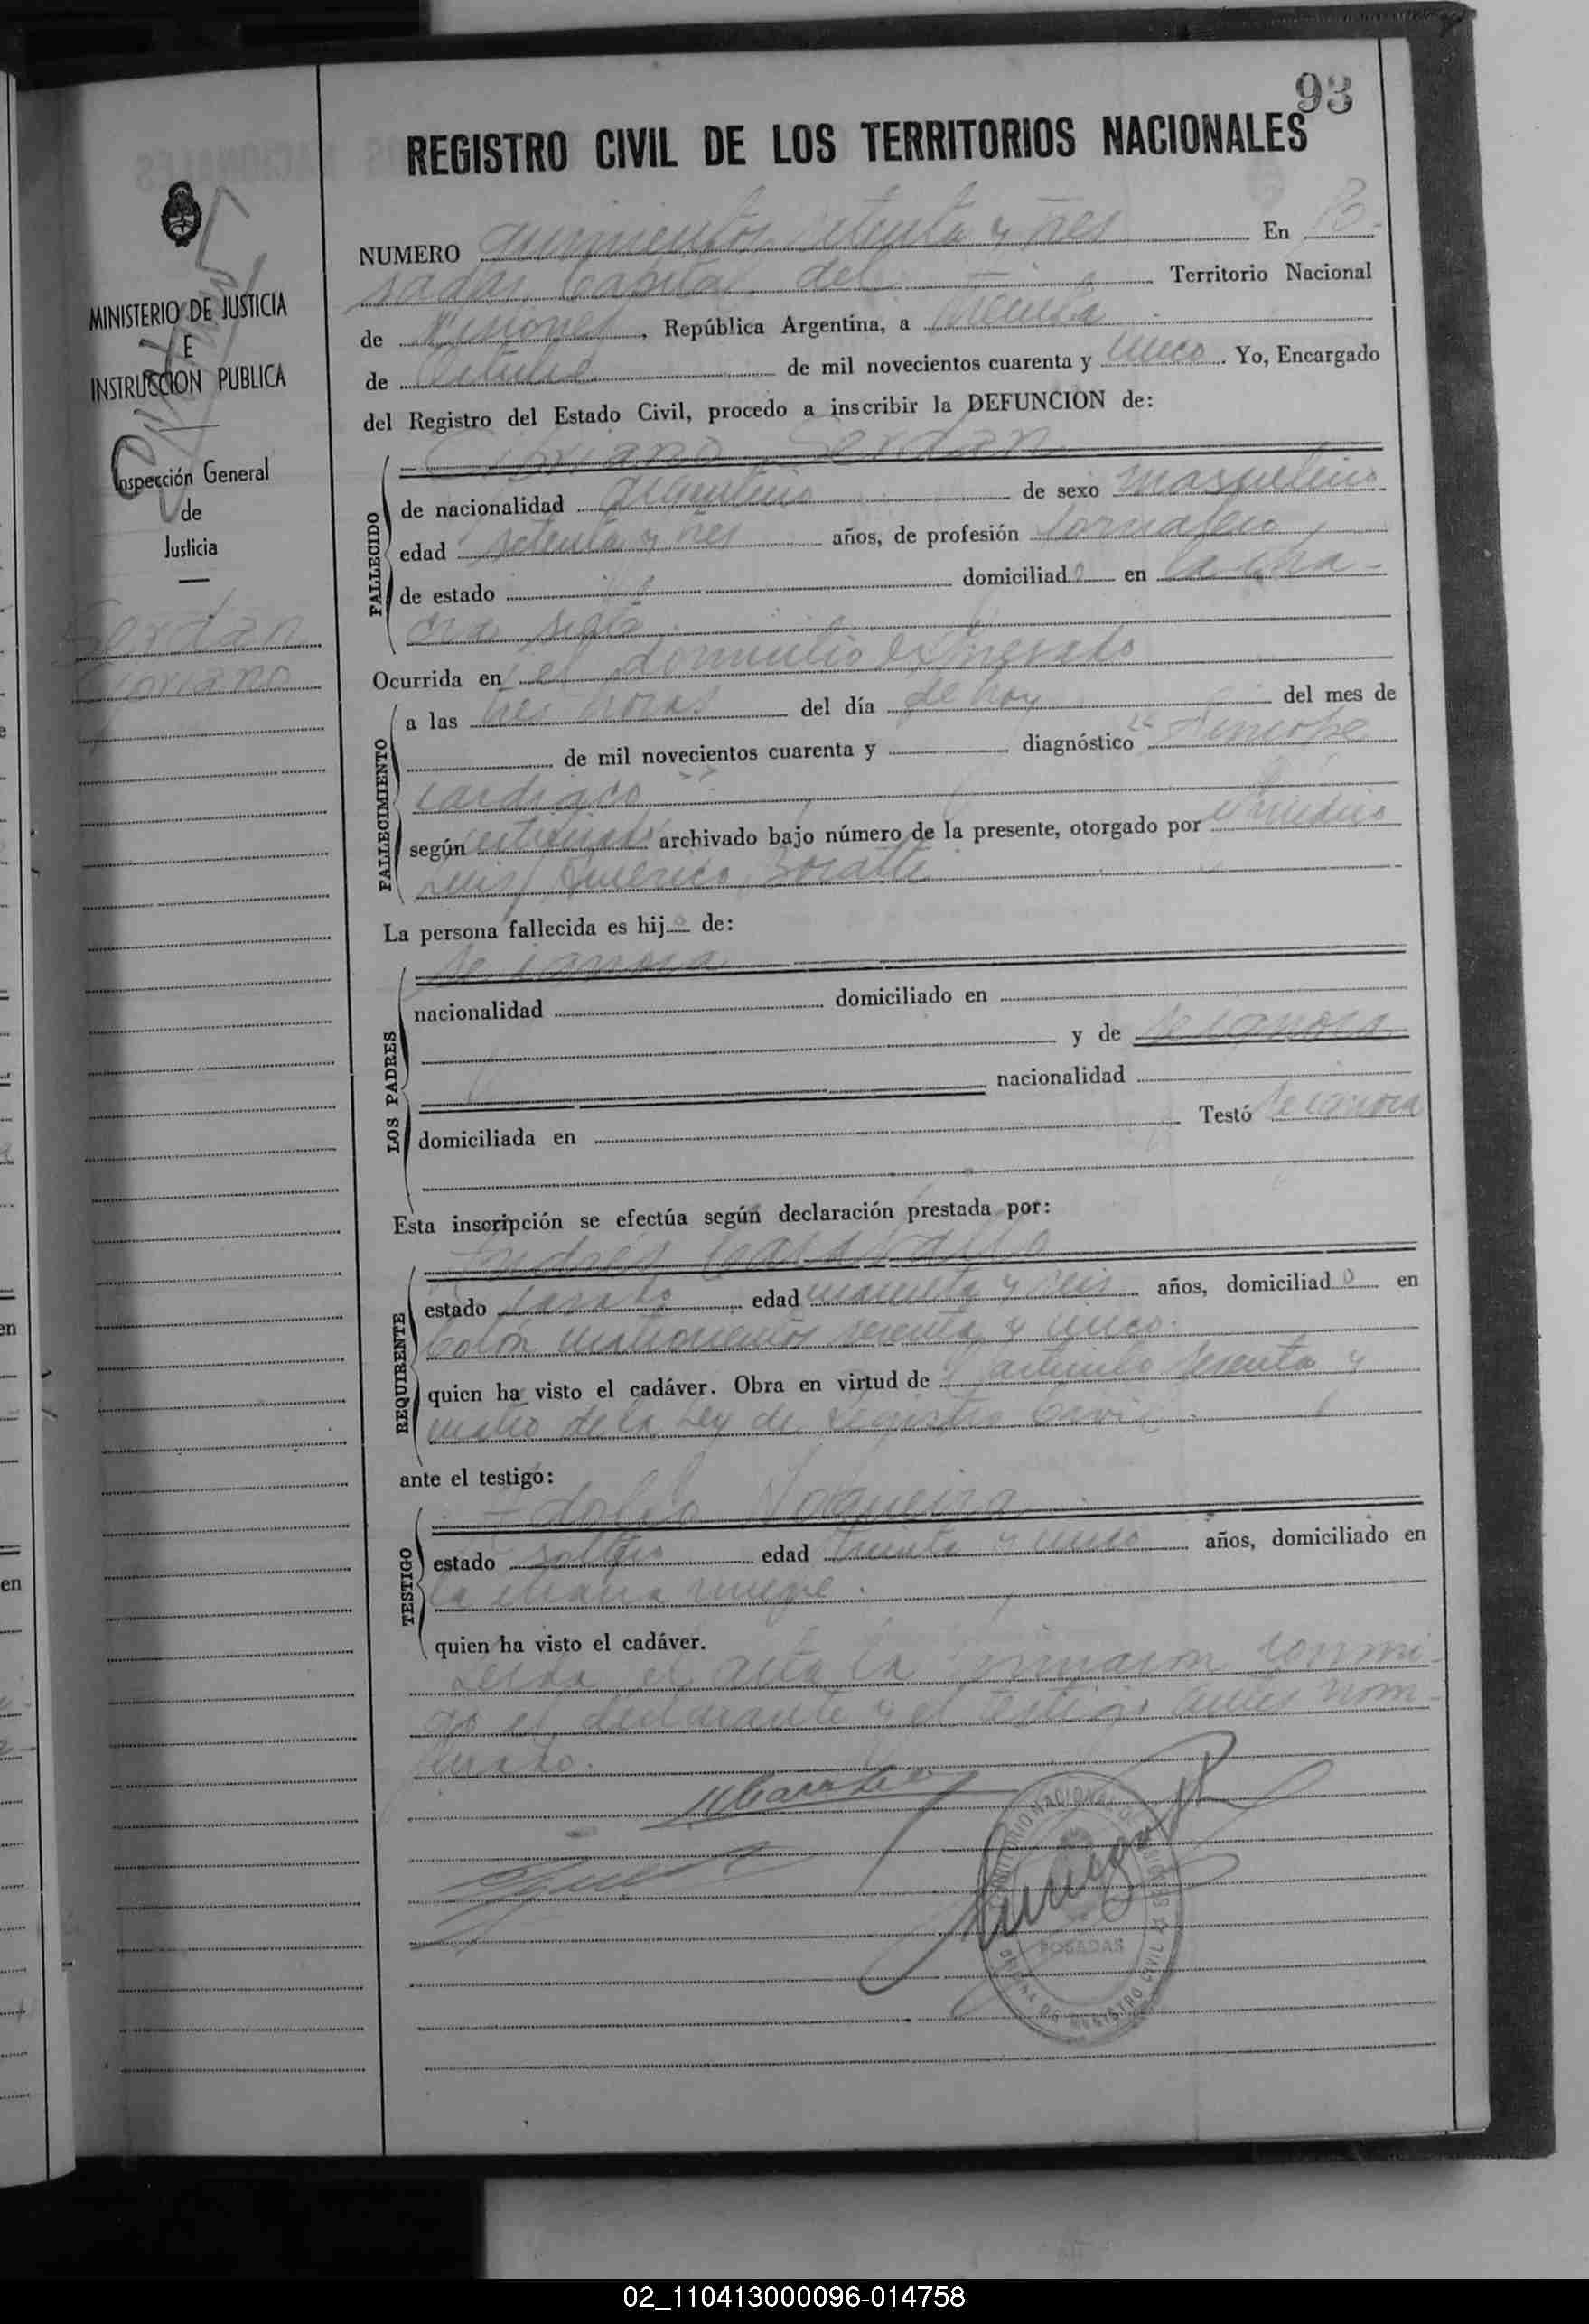 93
REGISTRO CIVIL DE LOS TERRITORIOS NACIONALES
NUMERO quinientos setenta y tres En Po-
sadas Capital del Territorio Nacional
de Misiones, República Argentina, a treinta
de Octubre de mil novecientos cuarenta y uno. Yo, Encargado
del Registro del Estado Civil, procedo a inscribir la DEFUNCION de:
Cipriano Serdán
de nacionalidad argentino de sexo masculino
FALLECIDO
edad setenta y tres años, de profesión jornalero,
de estado domiciliado en la cha-
cra siete
Ocurrida en el domicilio expresado
a las tres horas del día de hoy del mes de
de mil novecientos cuarenta y diagnóstico "Síncope
FALLECIMIENTO
cardíaco"
según certificado archivado bajo número de la presente, otorgado por el médico
Luis Américo
La persona fallecida es hijo de:
Se ignora
nacionalidad domiciliado en
LOS PADRES
y de se ignora
nacionalidad
domiciliada en Testó Se ignora
Esta inscripción se efectúa según declaración prestada por:
Andrés
estado casado edad cuarenta y seis años, domiciliado en
Colón cuatrocientos sesenta y uno.
REQUIRENTE
quien ha visto el cadáver. Obra en virtud de artículo sesenta y
cuatro de la Ley de Registro Civil.
ante el testigo:
Adolfo Nogueira
estado soltero edad treinta y uno años, domiciliado en
TESTIGO
la chacra nueve.
quien ha visto el cadáver.
Leída el acta la firmaron conmi-
go el declarante y el testigo antes nom-
brado.
MINISTERIO DE JUSTICIA
E
INSTRUCCION PUBLICA
Inspección General
de
Justicia
Serdán
Cipriano
POSADAS
02_110413000096-014758